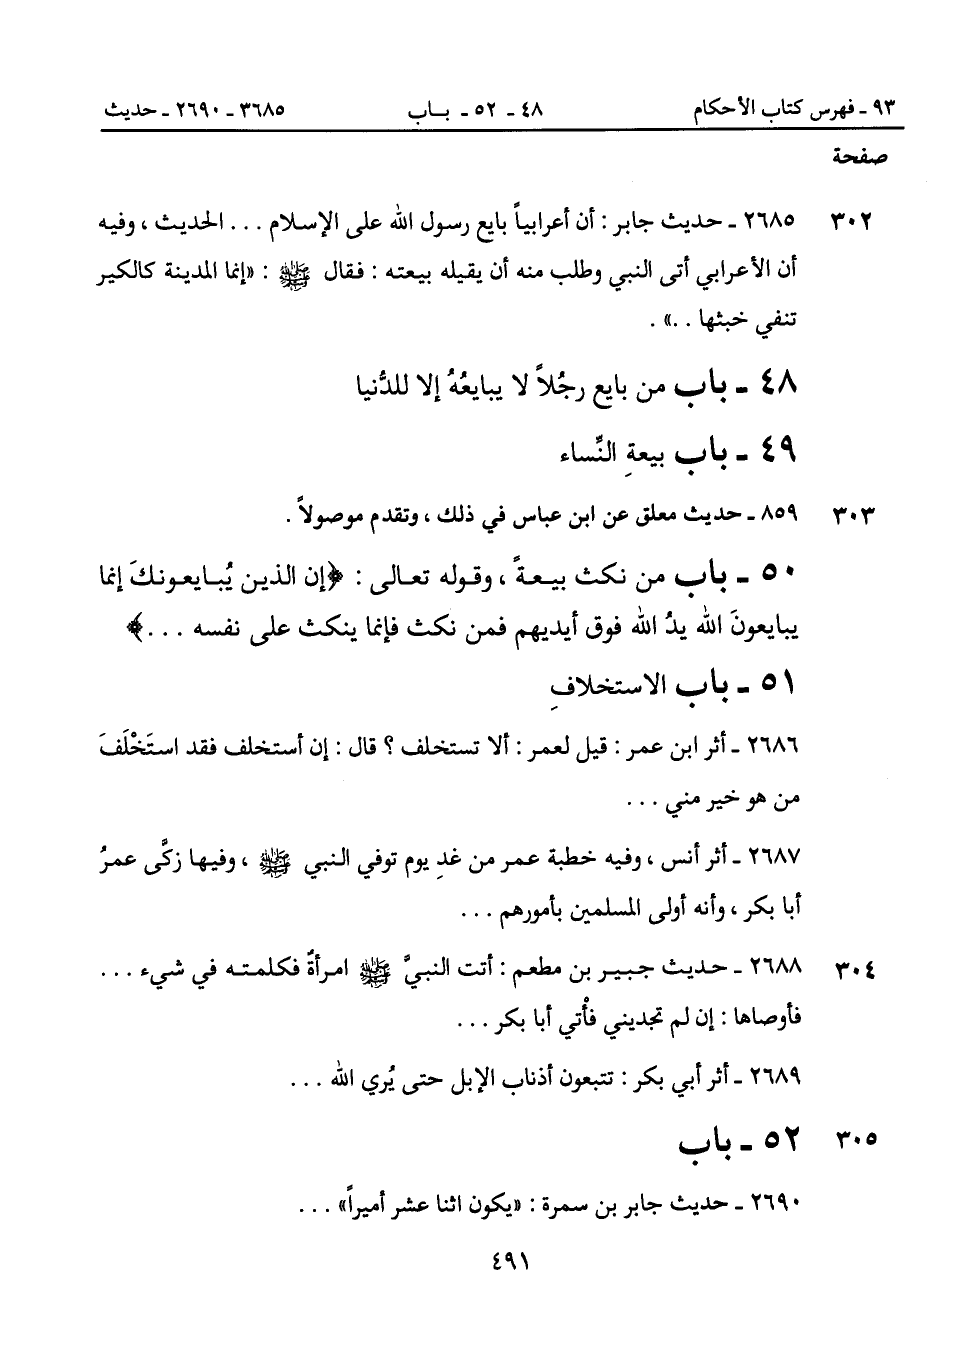 ٩٣ ـ فهرس كتاب الأحكام ٤٨ ـ ٥٢ ـ باب ٣٦٨٥ ـ ٢٦٩٠ ـ حديث
صفحة
٣٠٢ ٢٦٨٥ ـ حديث جابر : أن أعرابياً بايع رسول الله على الإسلام ... الحديث ، وفيه
أن الأعرابي أتى النبي وطلب منه أن يقيله بيعته : فقال ﷺ : «إنما المدينة كالكير
تنفي خبثها ..» .
٤٨ ـ باب من بايع رجُلاً لا يبايعُهُ إلا للدُّنيا
٤٩ ـ باب بيعةِ النِّساء
٣٠٣ ٨٥٩ ـ حديث معلق عن ابن عباس في ذلك ، وتقدم موصولاً .
٥٠ ـ باب من نكث بيعةً ، وقوله تعالى : ﴿إن الذين يُبايعونكَ إنما
يبايعونَ الله يدُ الله فوق أيديهم فمن نكث فإنما ينكث على نفسه ...﴾
٥١ ـ باب الاستخلافِ
٢٦٨٦ ـ أثر ابن عمر : قيل لعمر : ألا تستخلف ؟ قال : إن أستخلف فقد استَخْلَفَ
من هو خير مني ...
٢٦٨٧ ـ أثر أنس ، وفيه خطبة عمر من غدِ يوم توفي النبي ﷺ ، وفيها زكَّى عمرُ
أبا بكر ، وأنه أولى المسلمين بأمورهم ...
٣٠٤ ٢٦٨٨ ـ حديث جبير بن مطعم : أتت النبيَّ ﷺ امرأةٌ فكلمته في شيء ...
فأوصاها : إن لم تجديني فأْتي أبا بكر ...
٢٦٨٩ ـ أثر أبي بكر : تتبعون أذناب الإبل حتى يُري الله ...
٣٠٥ ٥٢ ـ باب
٢٦٩٠ ـ حديث جابر بن سمرة : «يكون اثنا عشر أميراً» ...
٤٩١